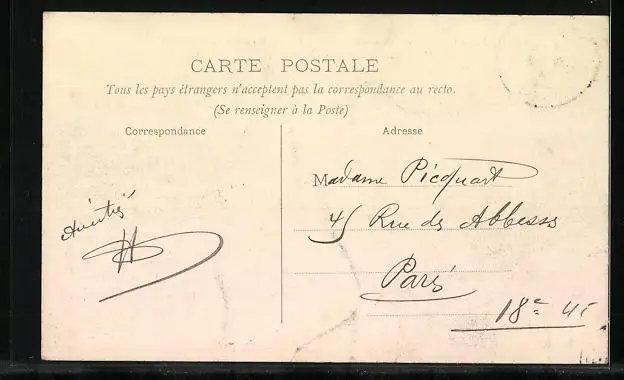 CARTE POSTALE
Tous les pays étrangers n'acceptent pas la correspondance au recto.
(Se renseigner à la Poste)
Correspondance
Adresse
Amitiés
Madame Picquart
45 Rue des Abbesses
Paris
18e